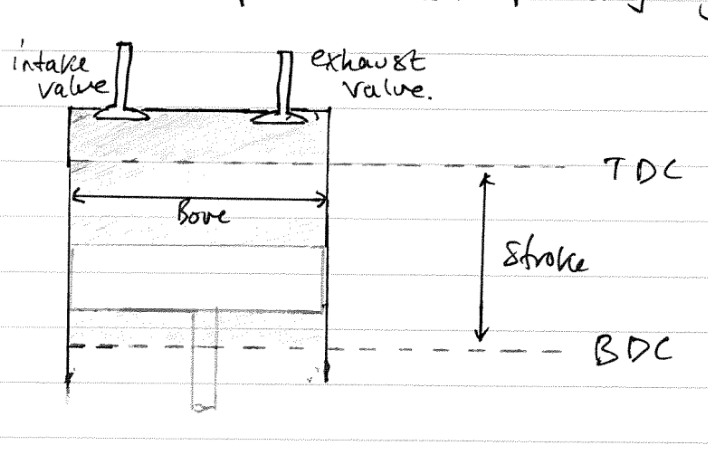 intake
valve
exhaust
valve.
TDC
Bore
Stroke
BDC